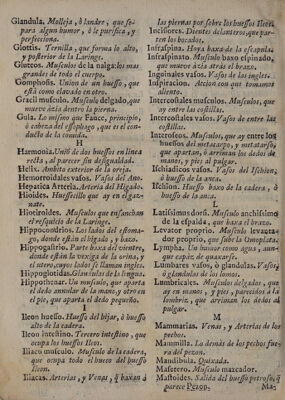 Glandula. Molleja, ò landre, que se-
para algun humor, ò le purifica, y
perfecciona.
Glottis. Ternilla, que forma lo alto,
y posterior de la Laringe.
Gluteos. Musculos de la nalga los mas
grandes de todo el cuerpo.
Gomphosis. Union de un huesso, que
està como clavado en otro.
Gracil musculo. Musculo delgado, que
mueve àzia dentro la pierna.
Gula. Lo mismo que Fauce, principio,
ò cabeza del esophago, que es el con-
ducto de la comida.
H
Harmonia. Uniõ de dos huessos en linea
recta, al parecer sin desigualdad.
Helix. Ambito exterior de la oreja.
Hemorroidales vasos. Vasos del Ano.
Hepatica Arteria. Arteria del Higado.
Hioides. Huessecillo que ay en el gaz-
nate.
Hiotiroides. Musculos que ensanchan
el resquicio de la Laringe.
Hippocondrios. Los lados del estoma-
go, donde estàn el higado, y bazo.
Hippogastrio. Parte baxa del vientre,
donde estàn la vexiga de la orina, y
el utero, cuyos lados se llaman ingles.
Hippoglotidas. Glandulas de la lengua.
Hippothenar. Un musculo, que aparta
el dedo annular de la mano, y otro en
el pie, que aparta el dedo pequeño.
I
Ileon huesso. Huesso del hijar, ò huesso
alto de la cadera.
Ileon intestino. Tercero intestino, que
ocupa los huessos Ileos.
Iliaco musculo. Musculo de la cadera,
que ocupa todo el hueco del huesso
Ileon.
Iliacas. Arterias, y Venas, q̃ baxan à
las piernas por sobre los huessos Ileos.
Incisiores. Dientes delanteros, que par-
ten los bocados.
Infraspina. Hoya baxa de la espaldilla.
Infraspinato. Musculo baxo espinado,
que mueve àzia atràs el brazo.
Inguinales vasos. Vasos de las ingles.
Inspiracion. Accion con que tomamos
aliento.
Intercostales musculos. Musculos, que
ay entre las costillas.
Intercostales vasos. Vasos de entre las
costillas.
Interosseos. Musculos, que ay entre los
huessos del metacarpo, y metatarso,
que apartan, ò arriman los dedos de
manos, y pies al pulgar.
Ischiadicos vasos. Vasos del Ischion,
ò huesso de la anca.
Ischion. Huesso baxo de la cadera, ò
huesso de la anca.
L
Latissimus dorsi. Musculo anchissimo
de la espalda, que baxa el brazo.
Levator proprio. Musculo levanta-
dor proprio, que sube la Omoplata.
Lympha. Un humor como agua, que
que capàz de quaxarse.
Lumbares vasos, ò glandulas. Vasos,
ò glandulas de los lomos.
Lumbricales. Musculos delgados, que
ay en manos, y pies, parecidos à la
lombriz, que arriman los dedos al
pulgar.
M
Mammarias. Venas, y Arterias de los
pechos.
Mammila. Lo demàs de los pechos fue-
ra del pezon.
Mandibula. Quixada.
Masetero. Musculo maxcador.
Mastoides. Salida del huesso petroso, q̃
parece Pezon.
Ma-